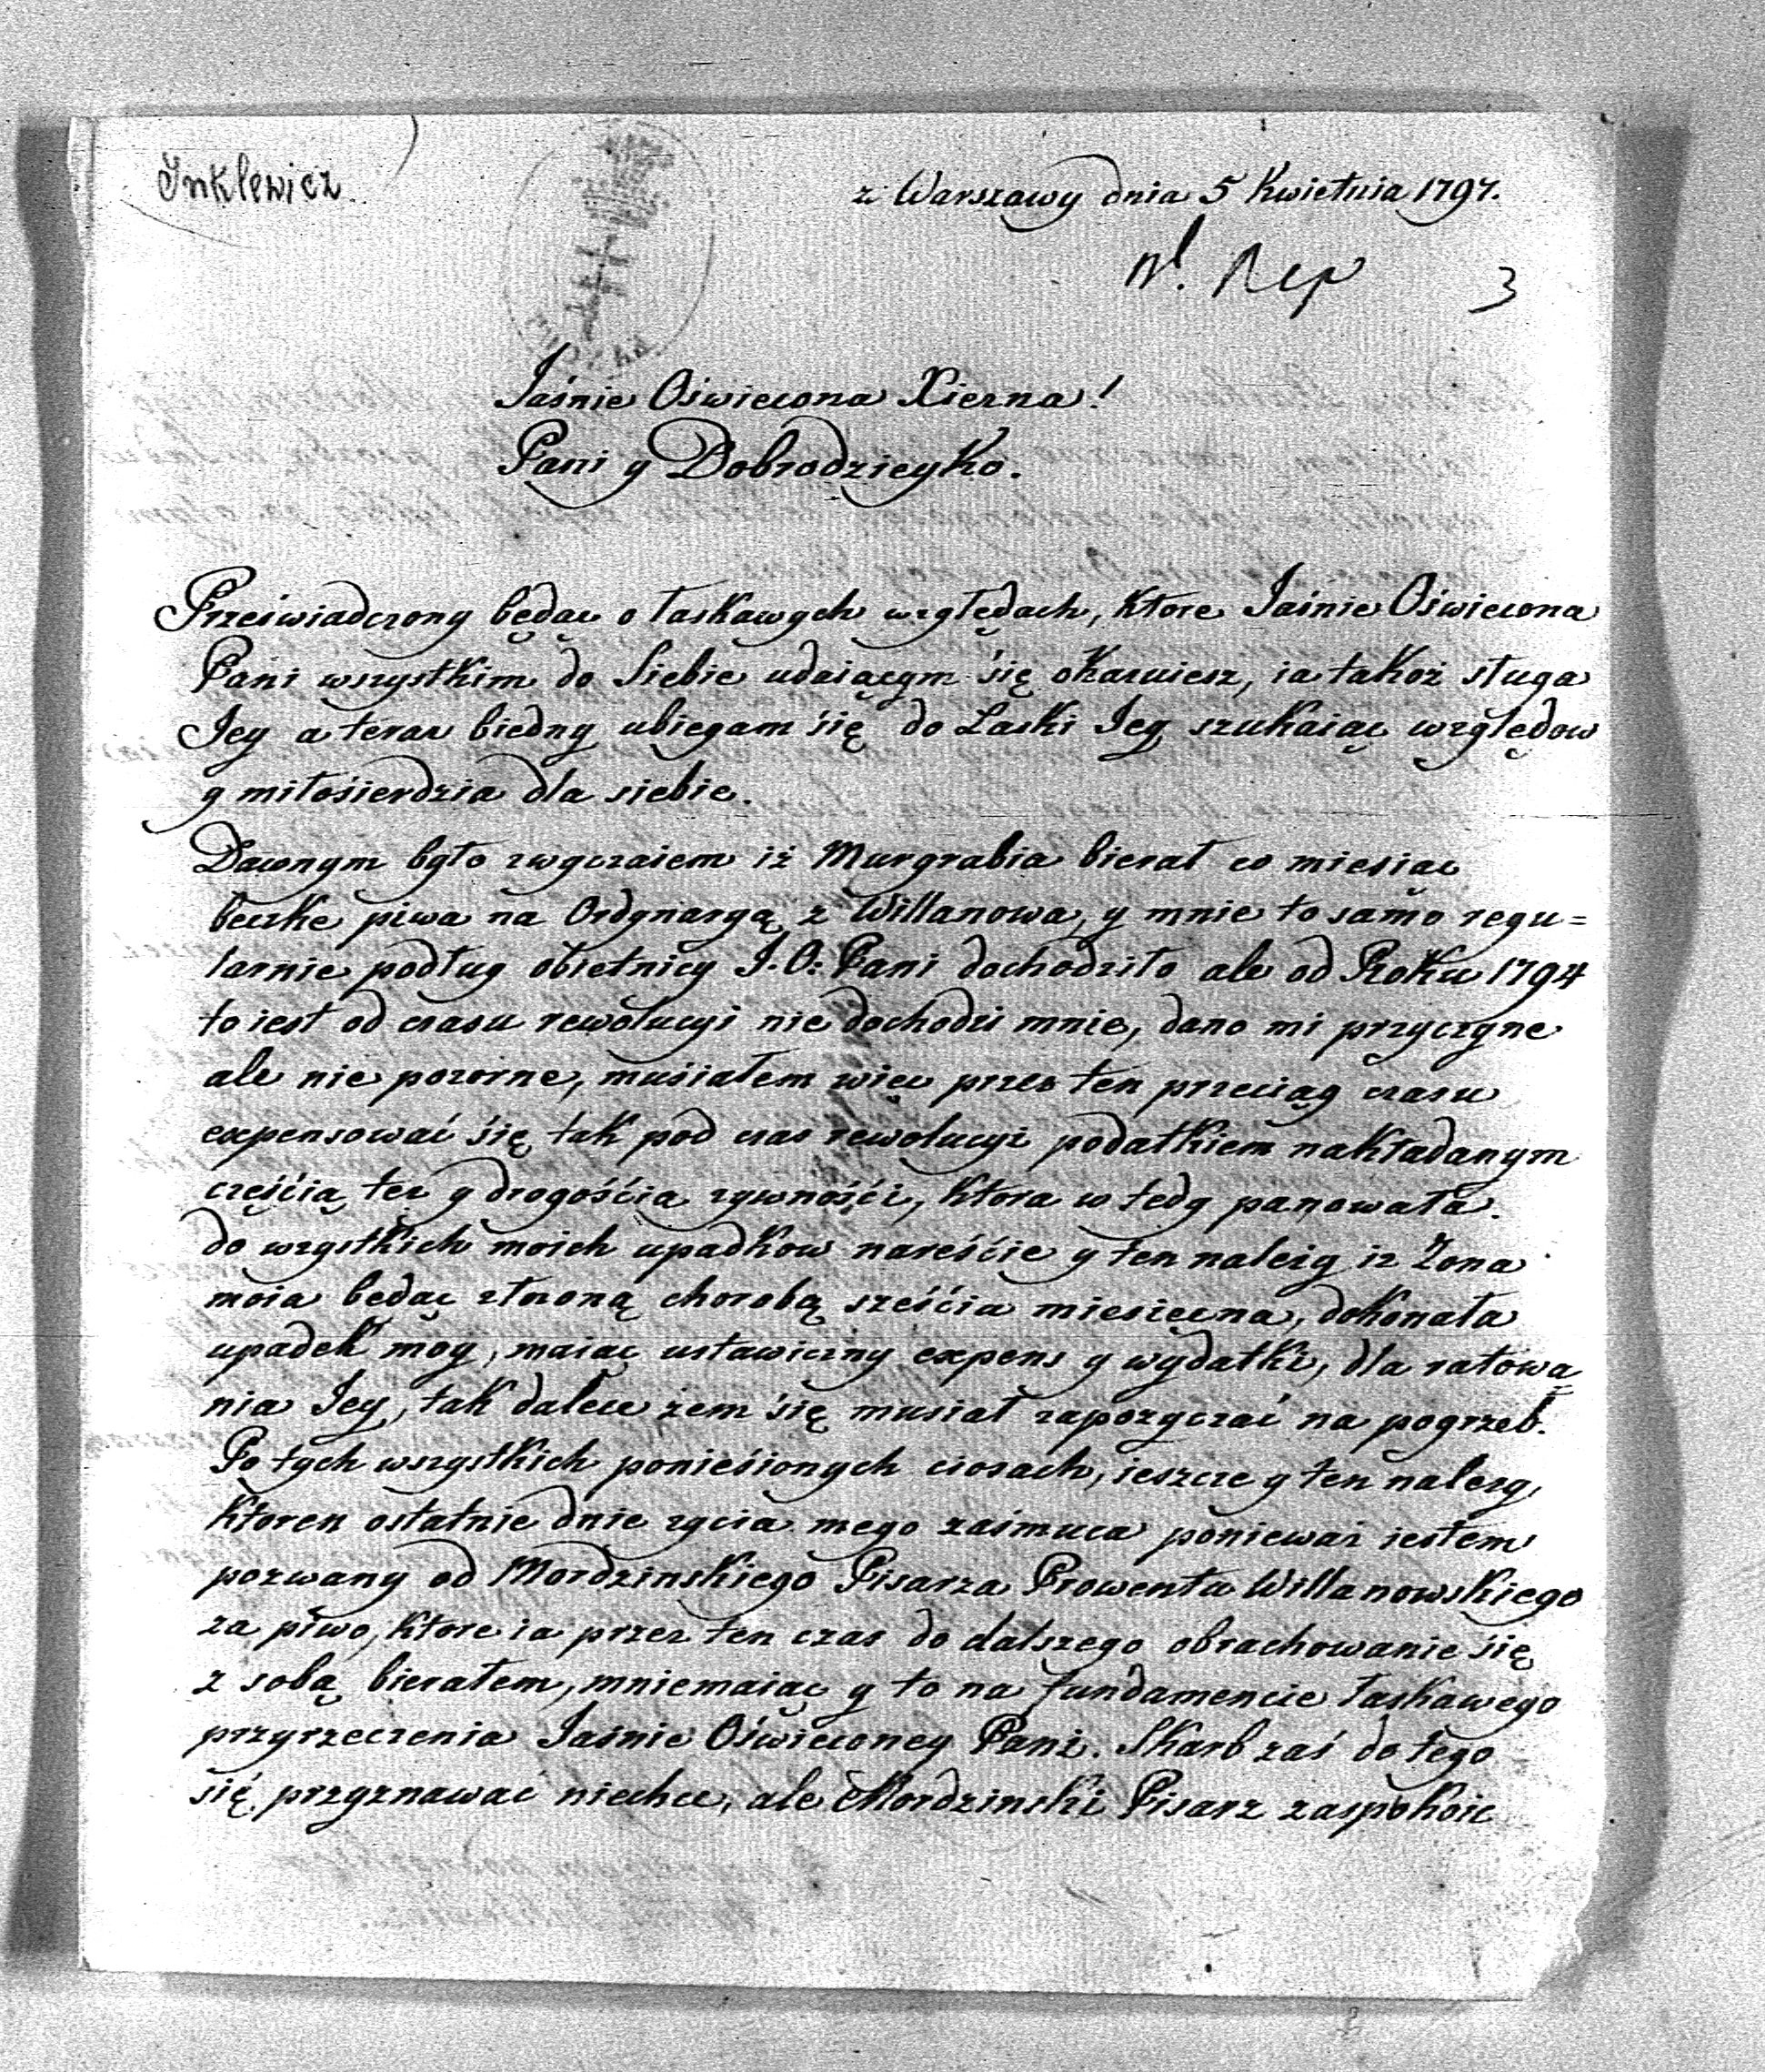 Inklewicz
z Warszawy dnia 5 Kwietnia 1797.
3
Jaśnie Oświecona Xiezna!
Pani y Dobrodzieyko.
Przeświadczony będąc o łaskawych względach, ktore Jaśnie Oświecona
Pani wszystkim do Siebie udaiącym się okazuiesz, ia takoż sługa
Jey a teraz biedny ubiegam się do Łaski Jey szukaiąc względow
y miłosierdzia dla siebie.
Dawnym było zwyczaiem iż Murgrabia bierał co miesiąc
beczke piwa na Ordynaryą z Willanowa, y mnie to samo regu=
larnie podług obietnicy J. O: Pani dochodziło ale od Roku 1794
to iest od czasu rewolucyi nie dochodzi mnie, dano mi przyczyne
ale nie pozorne, musiałem więc przez ten przeciąg czasu
expensować się tak pod czas rewolucyi podatkiem nakładanym
częścią tez y drogością zywnośći, ktora w tedy panowała.
do wszystkich moich upadkow nareście y ten należy iz Zona
moia będąc złozoną chorobą sześcia miesięczna, dokonała
upadek moy, maiąc ustawiczny expens y wydatki, dla ratowa
nia Jey, tak dalece żem się musiał zapozyczać na pogrzeb.
Po tych wszystkich poniesionych ciosach, ieszcze y ten nalezy,
Ktoren ostatnie dnie zycia mego zaśmuca poniewaz iestem
pozwany od Mordzinskiego Pisarza Prowentu Willanowskiego
za piwo, ktore ia przez ten czas do dalszego obrachowanie się
z sobą bierałem, mniemaiąc y to na fundamencie łaskawego
przyrzeczenia Jaśnie Oświeconey Pani. Skarb zaś do tego
się przyznawać niechce, ale Mordzinski Pisarz zaspokoic